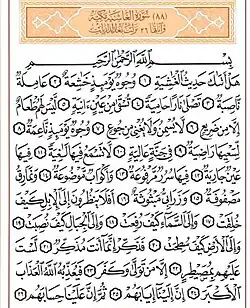 (٨٨) سُورَةُ الغَاشِيَةِ مَكِّيَّةٌ
وَآيَاتُهَا ٢٦ نَزَلَتْ بَعْدَ الذَّارِيَاتِ
بِسْمِ ٱللَّهِ ٱلرَّحْمَٰنِ ٱلرَّحِيمِ
هَلْ أَتَىٰكَ حَدِيثُ ٱلْغَٰشِيَةِ ١ وُجُوهٌ يَوْمَئِذٍ خَٰشِعَةٌ ٢ عَامِلَةٌ
نَّاصِبَةٌ ٣ تَصْلَىٰ نَارًا حَامِيَةً ٤ تُسْقَىٰ مِنْ عَيْنٍ ءَانِيَةٍ ٥ لَّيْسَ لَهُمْ طَعَامٌ
إِلَّا مِن ضَرِيعٍ ٦ لَّا يُسْمِنُ وَلَا يُغْنِى مِن جُوعٍ ٧ وُجُوهٌ يَوْمَئِذٍ نَّاعِمَةٌ ٨
لِّسَعْيِهَا رَاضِيَةٌ ٩ فِى جَنَّةٍ عَالِيَةٍ ١٠ لَّا تَسْمَعُ فِيهَا لَٰغِيَةً ١١ فِيهَا
عَيْنٌ جَارِيَةٌ ١٢ فِيهَا سُرُرٌ مَّرْفُوعَةٌ ١٣ وَأَكْوَابٌ مَّوْضُوعَةٌ ١٤ وَنَمَارِقُ
مَصْفُوفَةٌ ١٥ وَزَرَابِىُّ مَبْثُوثَةٌ ١٦ أَفَلَا يَنظُرُونَ إِلَى ٱلْإِبِلِ كَيْفَ
خُلِقَتْ ١٧ وَإِلَى ٱلسَّمَآءِ كَيْفَ رُفِعَتْ ١٨ وَإِلَى ٱلْجِبَالِ كَيْفَ نُصِبَتْ ١٩
وَإِلَى ٱلْأَرْضِ كَيْفَ سُطِحَتْ ٢٠ فَذَكِّرْ إِنَّمَآ أَنتَ مُذَكِّرٌ ٢١ لَّسْتَ
عَلَيْهِم بِمُصَيْطِرٍ ٢٢ إِلَّا مَن تَوَلَّىٰ وَكَفَرَ ٢٣ فَيُعَذِّبُهُ ٱللَّهُ ٱلْعَذَابَ
ٱلْأَكْبَرَ ٢٤ إِنَّ إِلَيْنَآ إِيَابَهُمْ ٢٥ ثُمَّ إِنَّ عَلَيْنَا حِسَابَهُم ٢٦